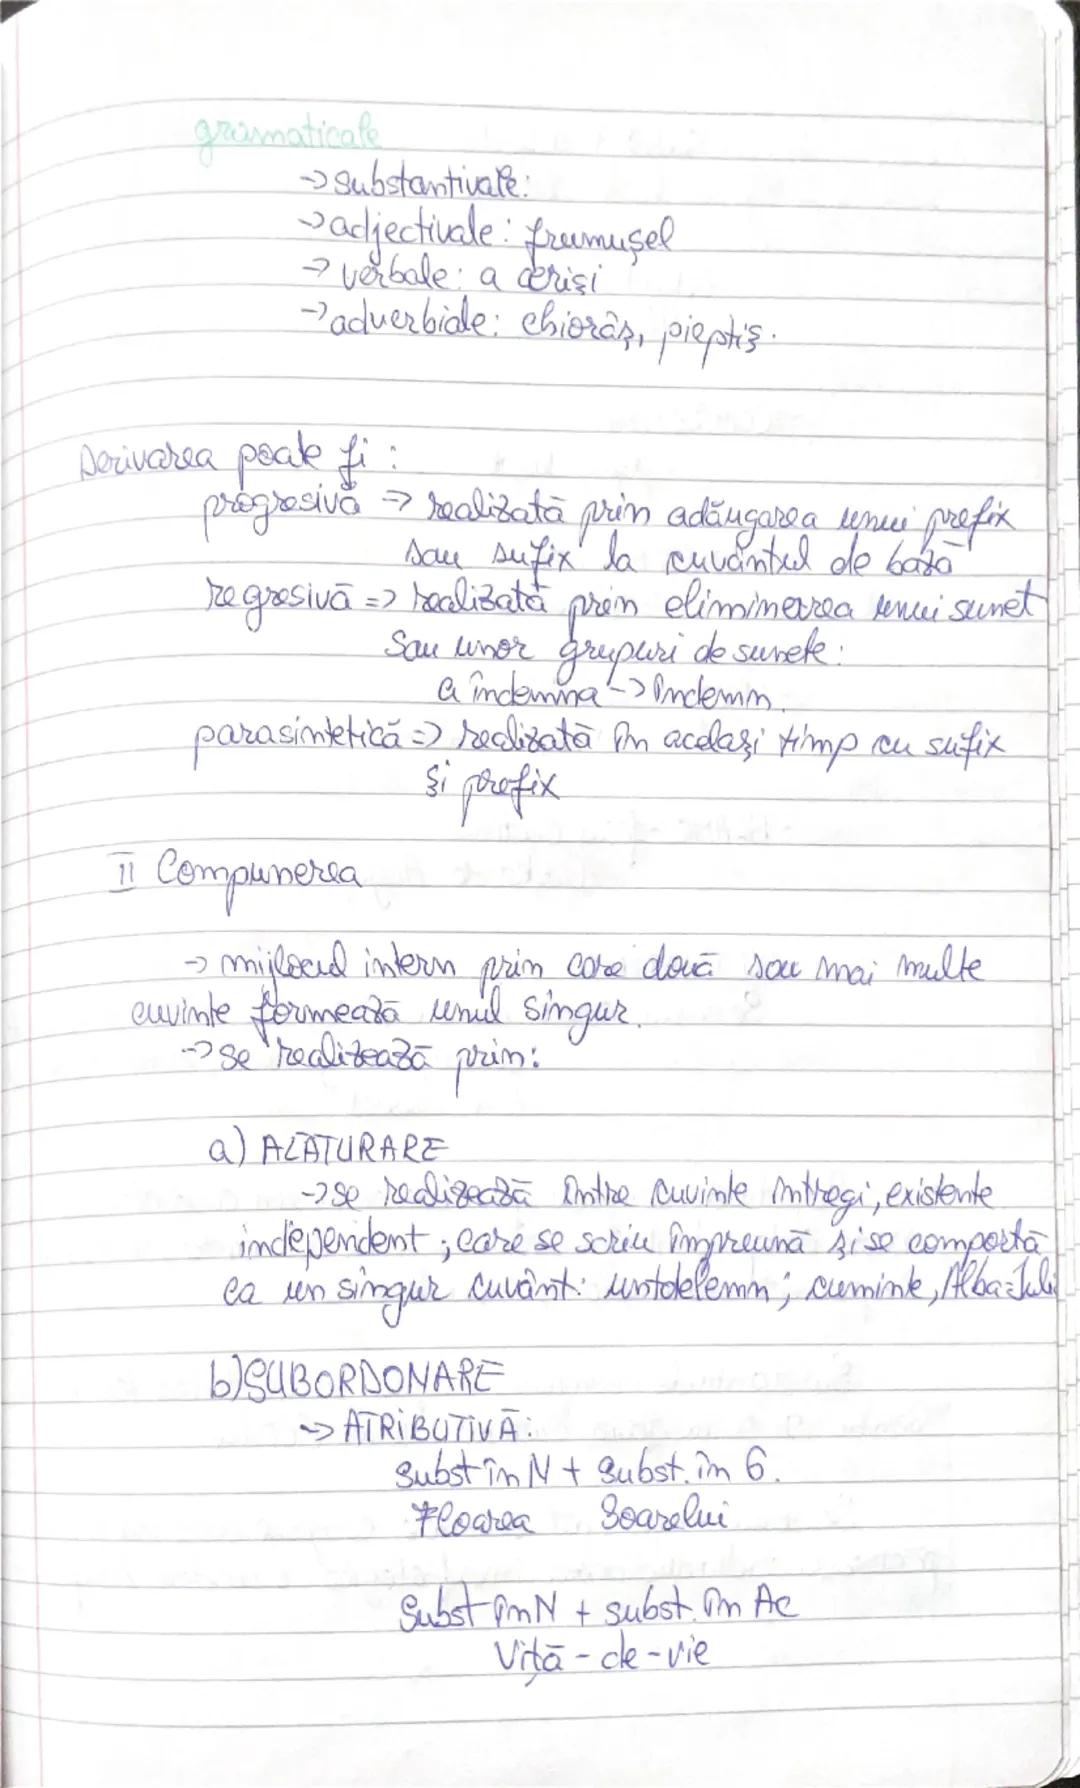 gramaticale
→ substantivale:
→ adjectivale: frumușel
→ verbale: a
→ adverbiale: chiorâș, pieptiș.
Derivarea poate fi :
progresivă => realizată prin adăugarea unui prefix
sau sufix la cuvântul de bază
regresivă => realizată prin eliminarea unui sunet
sau unor grupuri de sunete:
a îndemna -> îndemn.
parasintetică => realizată în același timp cu sufix
și prefix
II Compunerea
→ mijlocul intern prin care două sau mai multe
cuvinte formează unul singur.
→ se realizează prin:
a) ALĂTURARE
→ se realizează între cuvinte întregi, existente
independent; care se scriu împreună și se comportă
ca un singur cuvânt: untdelemn; cuminte, Alba-Iulia
b) SUBORDONARE
→ ATRIBUTIVĂ:
Subst în N + Subst. în G.
Floarea Soarelui
Subst în N + subst. în Ac
Viță-de-vie